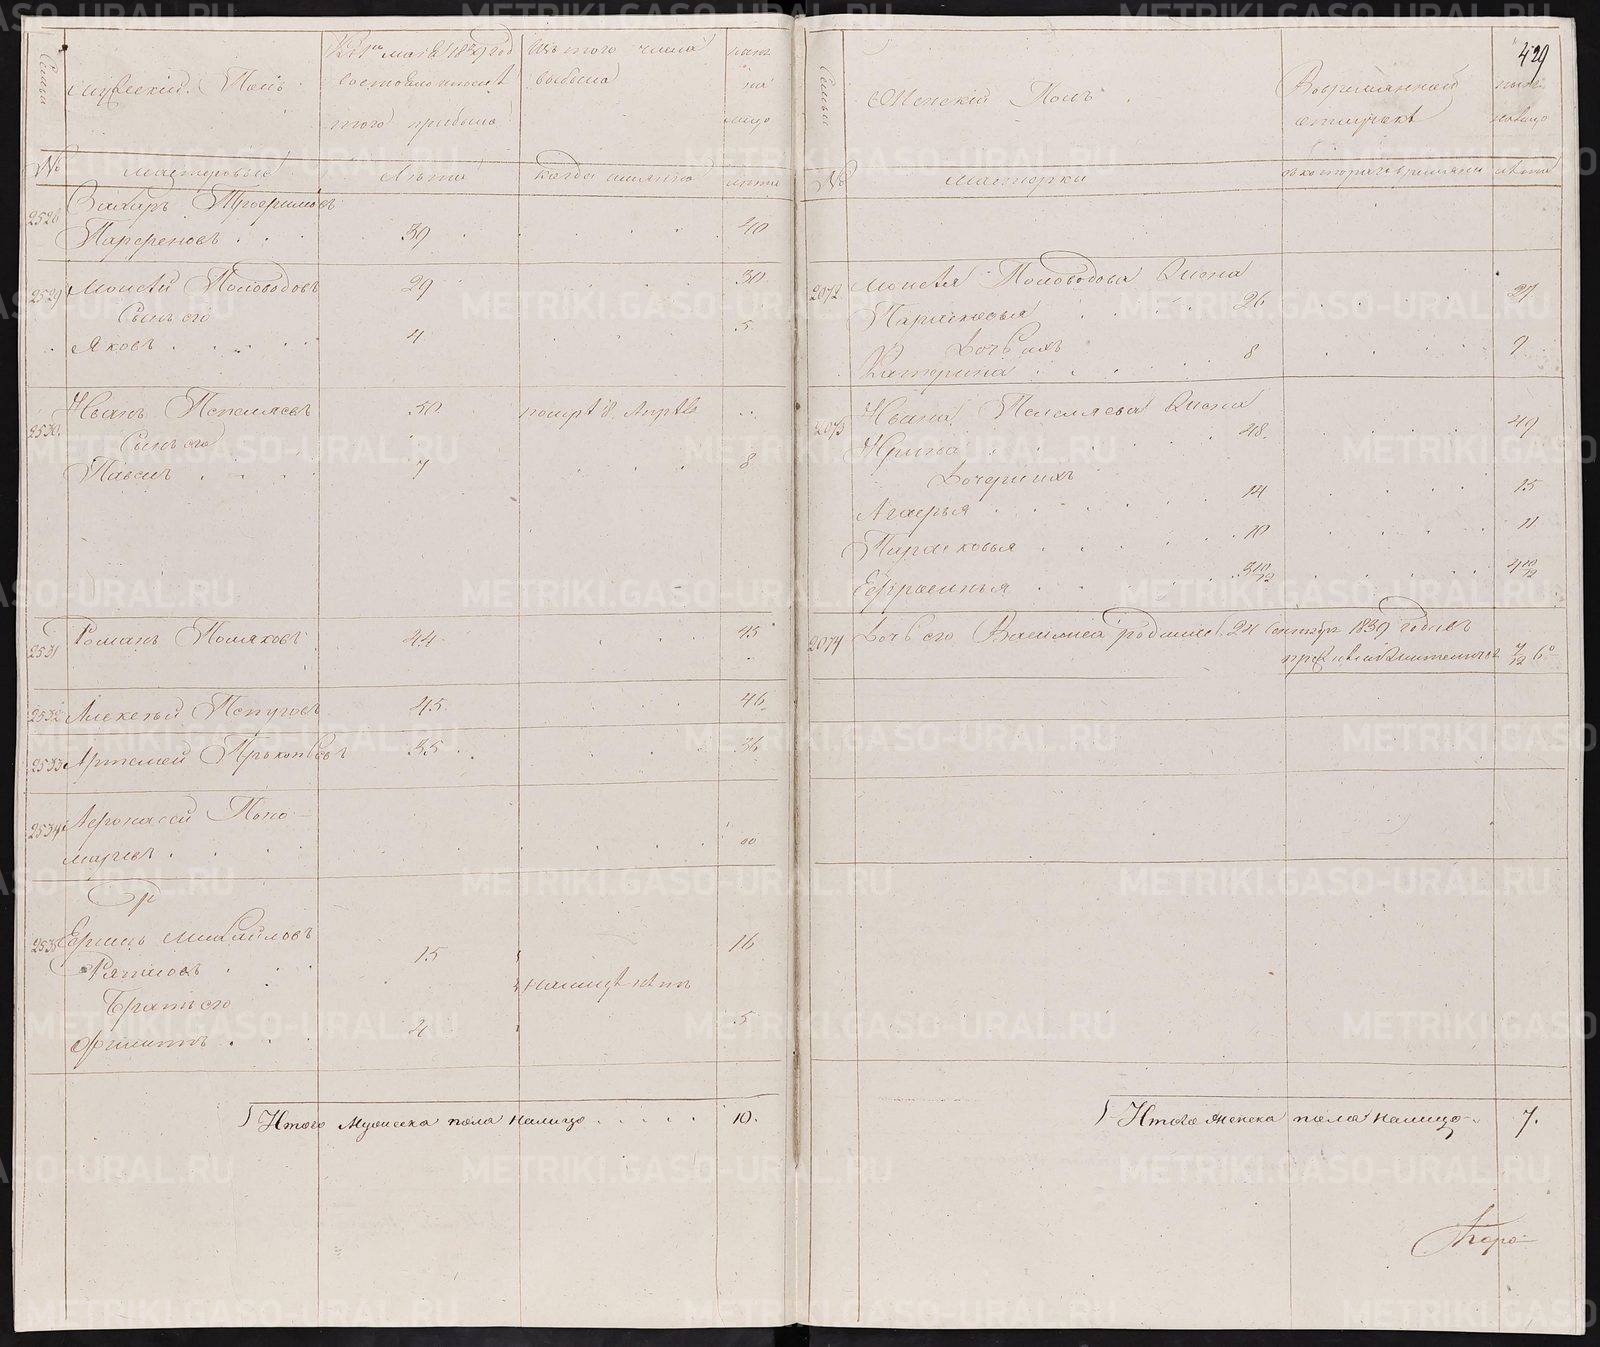 429
Семьи
Мужеской Полъ
К 1му мая 1839 год
состояло и после
того прибыло
Изъ того числа
выбыло
ныне
на
лицо
№
мастеровые
Лета
когда имянно
лета
2528
Захаръ Трофимовъ
Парфеновъ . . . 39 40
2529 Моисей Половодовъ 29 30
Сынъ его
Яковъ . . . . . 4 5
2530. Иванъ Пепеляевъ 50 помре 8 Апреля
Сынъ его
Павелъ . . . . 7 8
2531 Романъ Поляковъ 44 45
2532 Алексей Пепуловъ 45 46
2533 Артемей Прокопьевъ 35 36
2534 Афонасей Поно-
маревъ . . . . 00
Р
2535 Ефимъ Михайловъ 15 16
Рятновъ . . .
налице нетъ
Братъ его
Филиппъ . . . 4 5
Итого Мужеска пола налицо . . . . . 10.
Семьи
Женской Полъ
Во временной
отлучке
ныне
налицо
№
Мастерки
съ котораго времяни
лета
2072. Моисея Половодова Жена
Парасковья . . . . 26 27
Дочь ихъ
Катерина . . . . . 8 9
2073 Ивана Пепеляева Жена
Ирина . . . . . 48. 49
Дочери ихъ
Агафья . . . . . 14 15
Парасковья . . . . . 10 11
Ефросинья . . . . . 3 10/12 4 10/12
2074 Дочь его Василиса родилась 24 Сентября 1839 года въ
7/12 60
Итого женска пола налицо. 7.